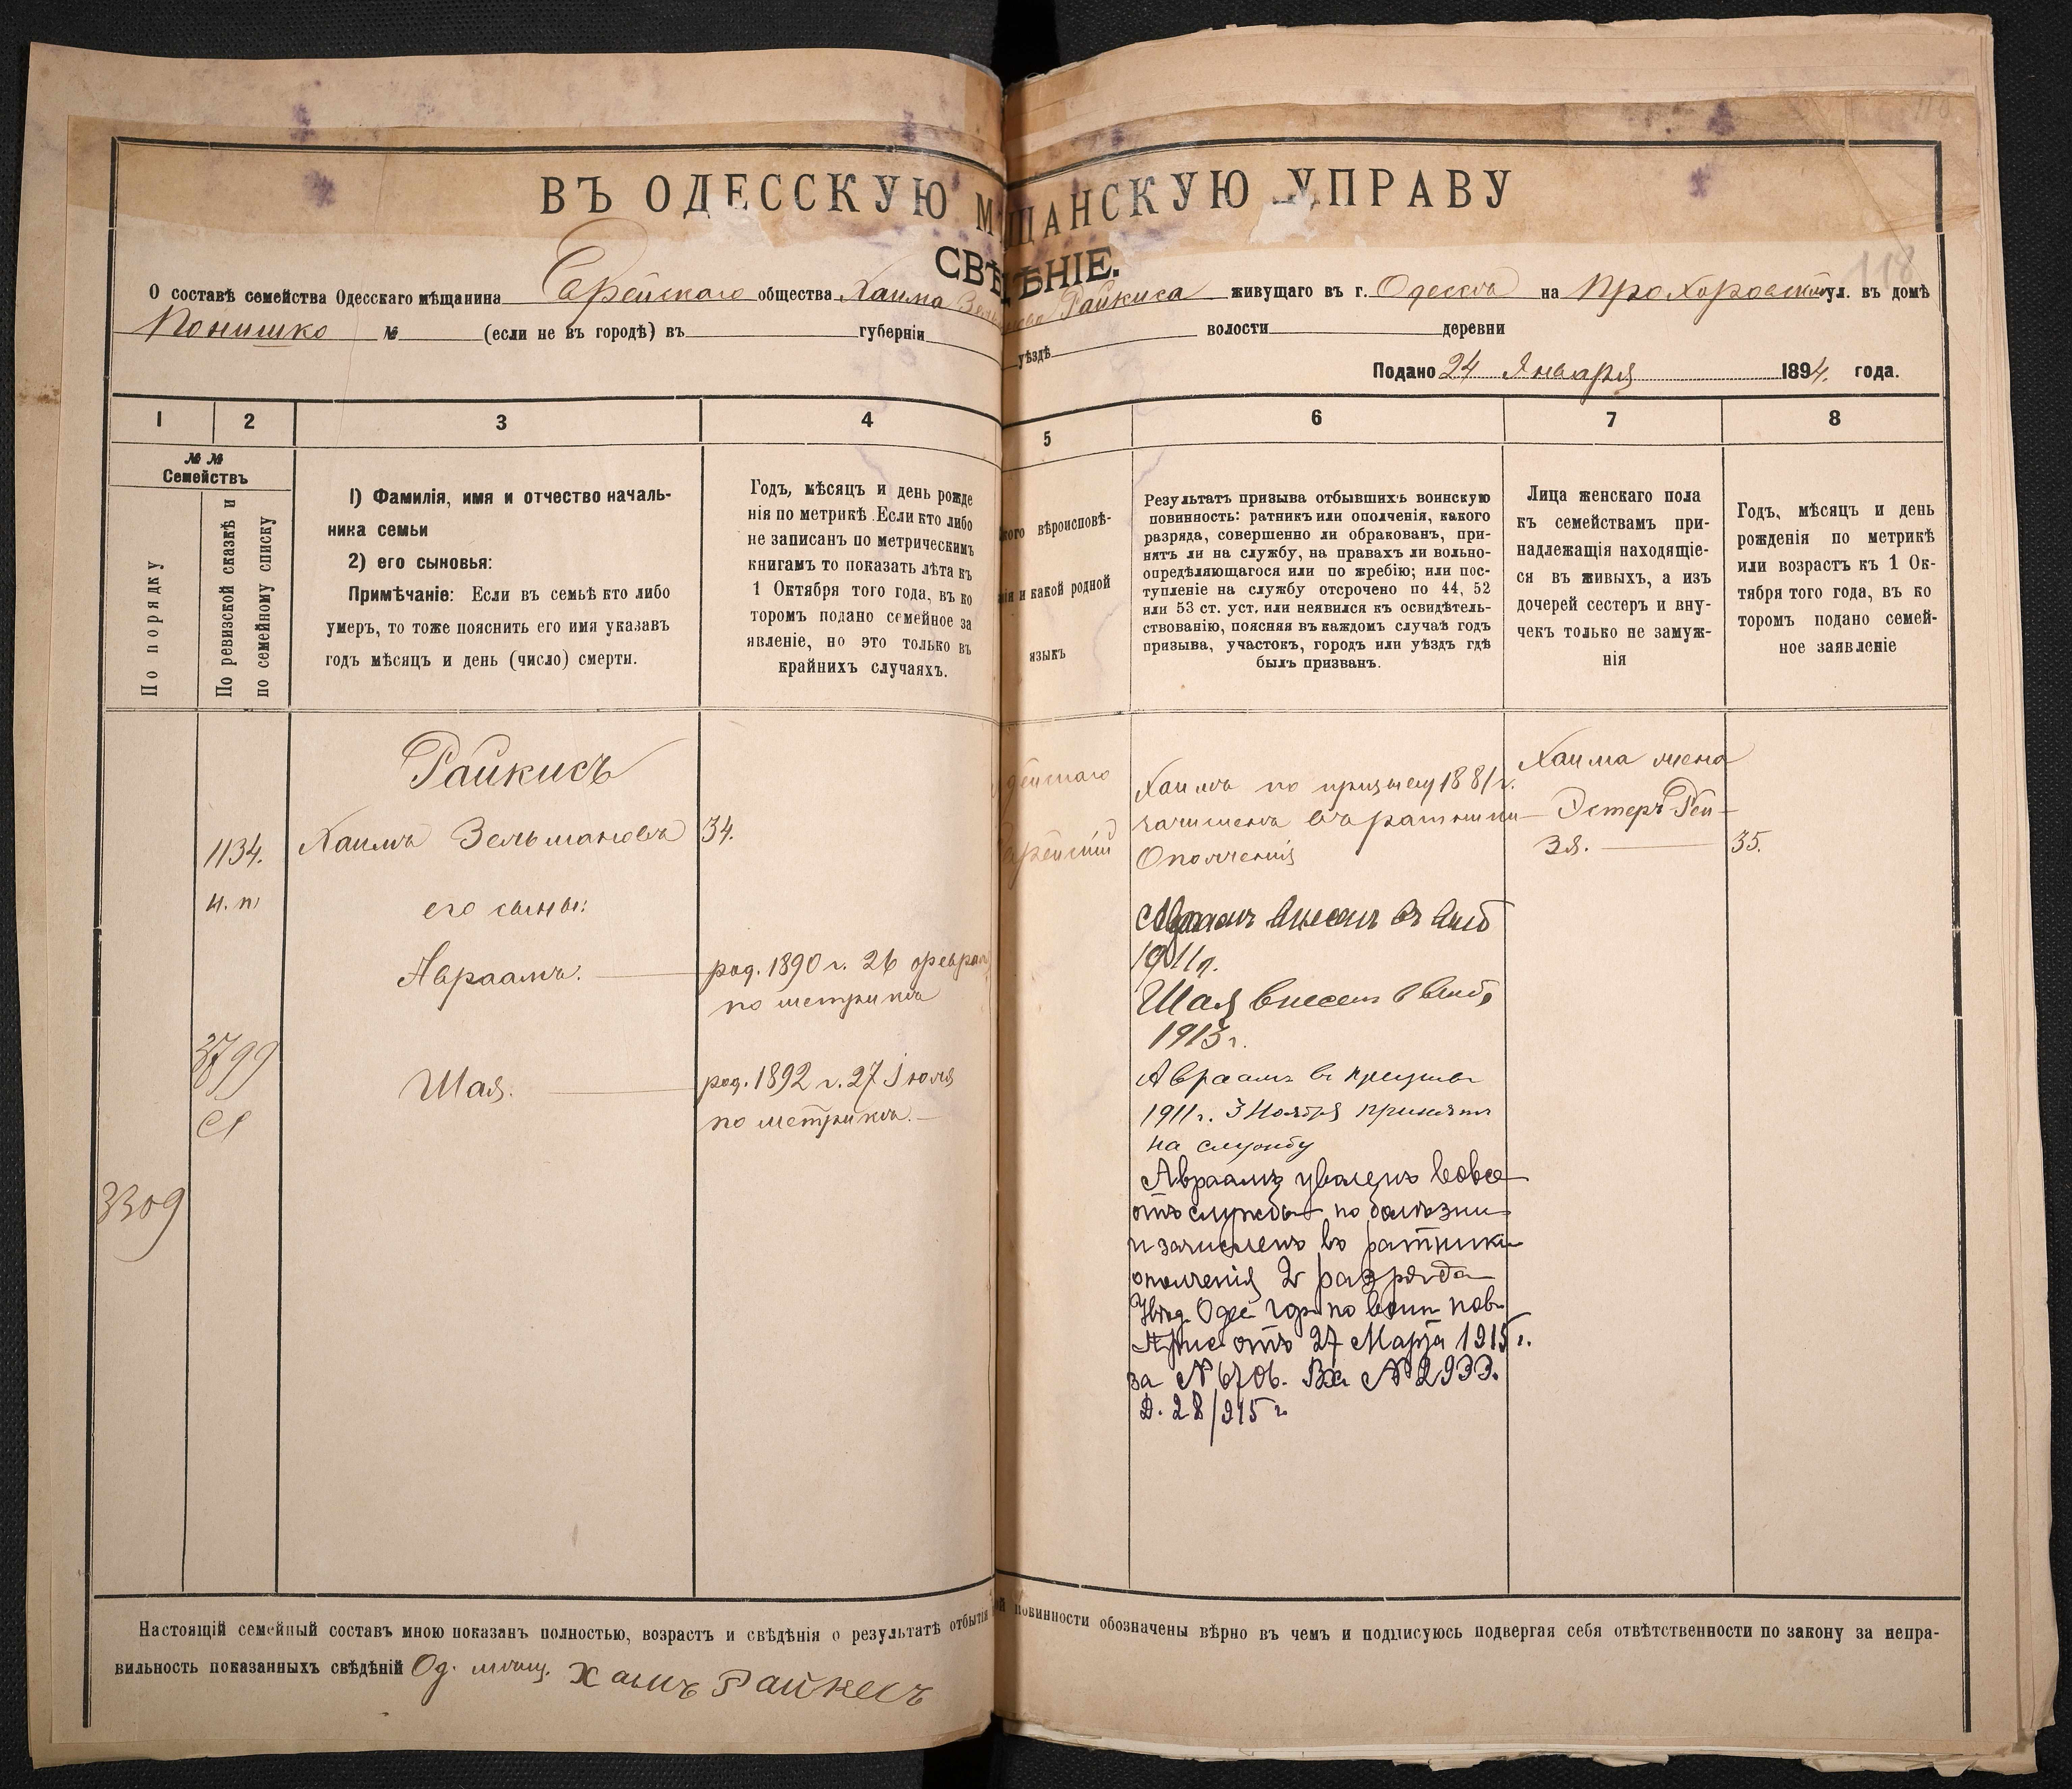 ВЪ ОДЕССКУЮ МѢЩАНСКУЮ УПРАВУ
СВѢДѢНІЕ.
118
О составѣ семейства Одесскаго мѣщанина Еврейскаго общества Хаима Райкиса живущаго въ г. Одессѣ на Прохоровской ул. въ домѣ
Понишко № (если не въ городѣ) въ губерніи уѣздѣ волости деревни
Подано 24 Января 1894. года.
1 2 3 4 5 6 7 8
№ №
Семействъ
По порядку
По ревизской сказкѣ и
по семейному списку
1) Фамилія, имя и отчество началь-
ника семьи
2) его сыновья:
Примѣчаніе: Если въ семьѣ кто либо
умеръ, то тоже пояснить его имя указавъ
годъ мѣсяцъ и день (число) смерти.
Годъ, мѣсяцъ и день рожде
нія по метрикѣ. Если кто либо
не записанъ по метрическимъ
книгамъ то показать лѣта къ
1 Октября того года, въ ко
торомъ подано семейное за
явленіе, но это только въ
крайнихъ случаяхъ.
вѣроисповѣ-
и какой родной
языкъ
Результатъ призыва отбывшихъ воинскую
повинность: ратникъ или ополченія, какого
разряда, совершенно ли обракованъ, при-
нятъ ли на службу, на правахъ ли вольно-
опредѣляющагося или по жребію; или пос-
тупленіе на службу отсрочено по 44, 52
или 53 ст. уст. или неявился къ освидѣтель-
ствованію, поясняя въ каждомъ случаѣ годъ
призыва, участокъ, городъ или уѣздъ гдѣ
былъ призванъ.
Лица женскаго пола
къ семействамъ при-
надлежащія находящіе-
ся въ живыхъ, а изъ
дочерей сестеръ и вну-
чекъ только не замуж-
нія
Годъ, мѣсяцъ и день
рожденія по метрикѣ
или возрастъ къ 1 Ок-
тября того года, въ ко
торомъ подано семей-
ное заявленіе
Райкисъ
1134. Хаимъ Зельмановъ 34.
н. п. его сыны:
Авраамъ. род. 1890 г. 26 февраля
по метрикѣ
3799
Шая. род. 1892 г. 27 Іюля
по метрикѣ.
3309
Хаимъ по призыву 1881 г.
зачисленъ въ ратники
Ополченія
Авраамъ внесенъ въ
1911 г.
Шая внесенъ в
1913 г.
Авраамъ в призывѣ
1911 г. 3 Ноября принятъ
на службу
Авраамъ уволенъ вовсе
отъ службы по болѣзни
и зачисленъ въ ратники
ополченія 2 разряда
Увѣд. Одес гор по воин пов.
Прис отъ 27 Марта 1915 г.
за № 6706. Вх № 2933.
Д. 28/915 г.
Хаима жена
Эстеръ Рей-
зя. 35.
Настоящій семейный составъ мною показанъ полностью, возрастъ и свѣдѣнія о результатѣ отбытія повинности обозначены вѣрно въ чемъ и подписуюсь подвергая себя отвѣтственности по закону за непра-
вильность показанныхъ свѣдѣній Од. мѣщ. Хаимъ Райкисъ